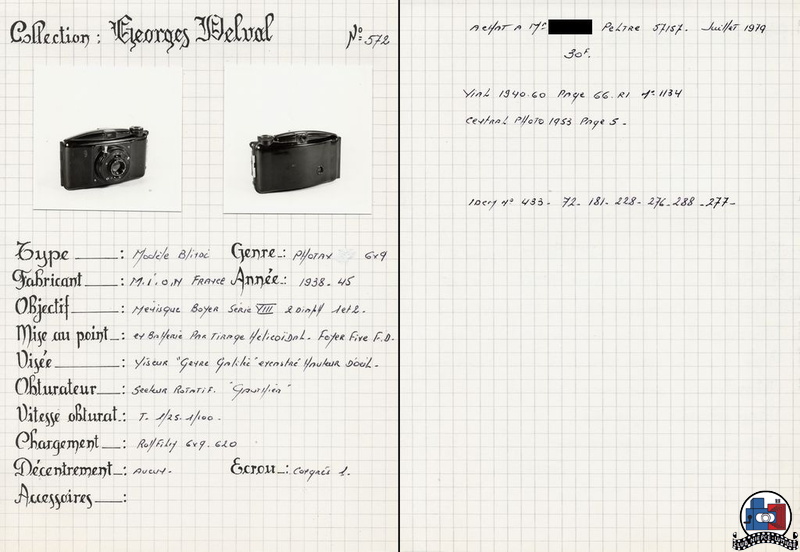 Collection : Georges Delval
N° 572
Type : Modèle Blindé Genre : Photax 6x9
Fabricant : M.I.O.M France Année : 1938-45
Objectif : Ménisque Boyer Série VIII 2 Diaph 1 et 2.
Mise au point : en Batterie Par Tirage Hélicoïdal. Foyer Fixe F.D.
Visée : Viseur "Genre Galilée" encastré Hauteur D'oeil.
Obturateur : Secteur Rotatif.
Vitesse obturat. : T. 1/25. 1/100.
Chargement : Rollfilm 6x9. 620
Décentrement : Aucun. Ecrou : Congrès 1.
Accessoires :
Achat A Mr Peltre 57157. Juillet 1979
30F.
Vial 1940.60 Page 66. R1 n° 1134
Central Photo 1953 Page 5.
Idem n° 433 - 72 - 181 - 228 - 276 - 288 - 277 -